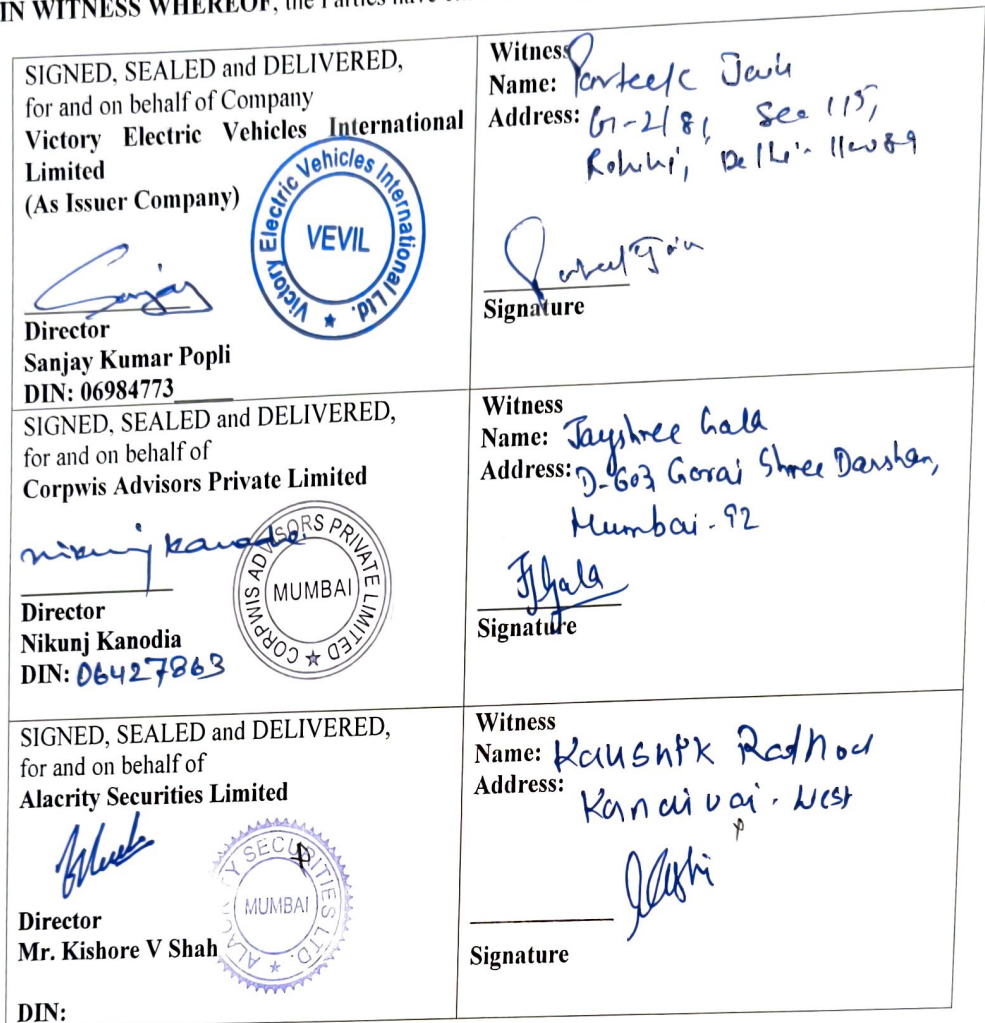 IN WITNESS WHEREOF, the Parties have
SIGNED, SEALED and DELIVERED,
for and on behalf of Company
Victory Electric Vehicles International
Limited
(As Issuer Company)
Victory Electric Vehicles International Ltd.
VEVIL
Sanjay
Director
Sanjay Kumar Popli
DIN: 06984773
Witness
Name: Parteek Jain
Address: G-2/81, Sec 115,
Rohini, Delhi- 110089
Parteek Jain
Signature
SIGNED, SEALED and DELIVERED,
for and on behalf of
Corpwis Advisors Private Limited
nikunj kanodia
CORPWIS ADVISORS PRIVATE LIMITED
MUMBAI
Director
Nikunj Kanodia
DIN: 06427863
Witness
Name: Jayshree Gala
Address: D-603 Gorai Shree Darshan,
Mumbai-92
JJGala
Signature
SIGNED, SEALED and DELIVERED,
for and on behalf of
Alacrity Securities Limited
ALACRITY SECURITIES LTD.
MUMBAI
Director
Mr. Kishore V Shah
DIN:
Witness
Name: Kaushik Rathod
Address:
Kandivai. West
Signature